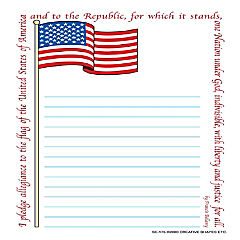 I pledge allegiance to the flag of the United States of America
and to the Republic, for which it stands,
one Nation under God, indivisible, with liberty and justice for all.
by Francis Bellamy